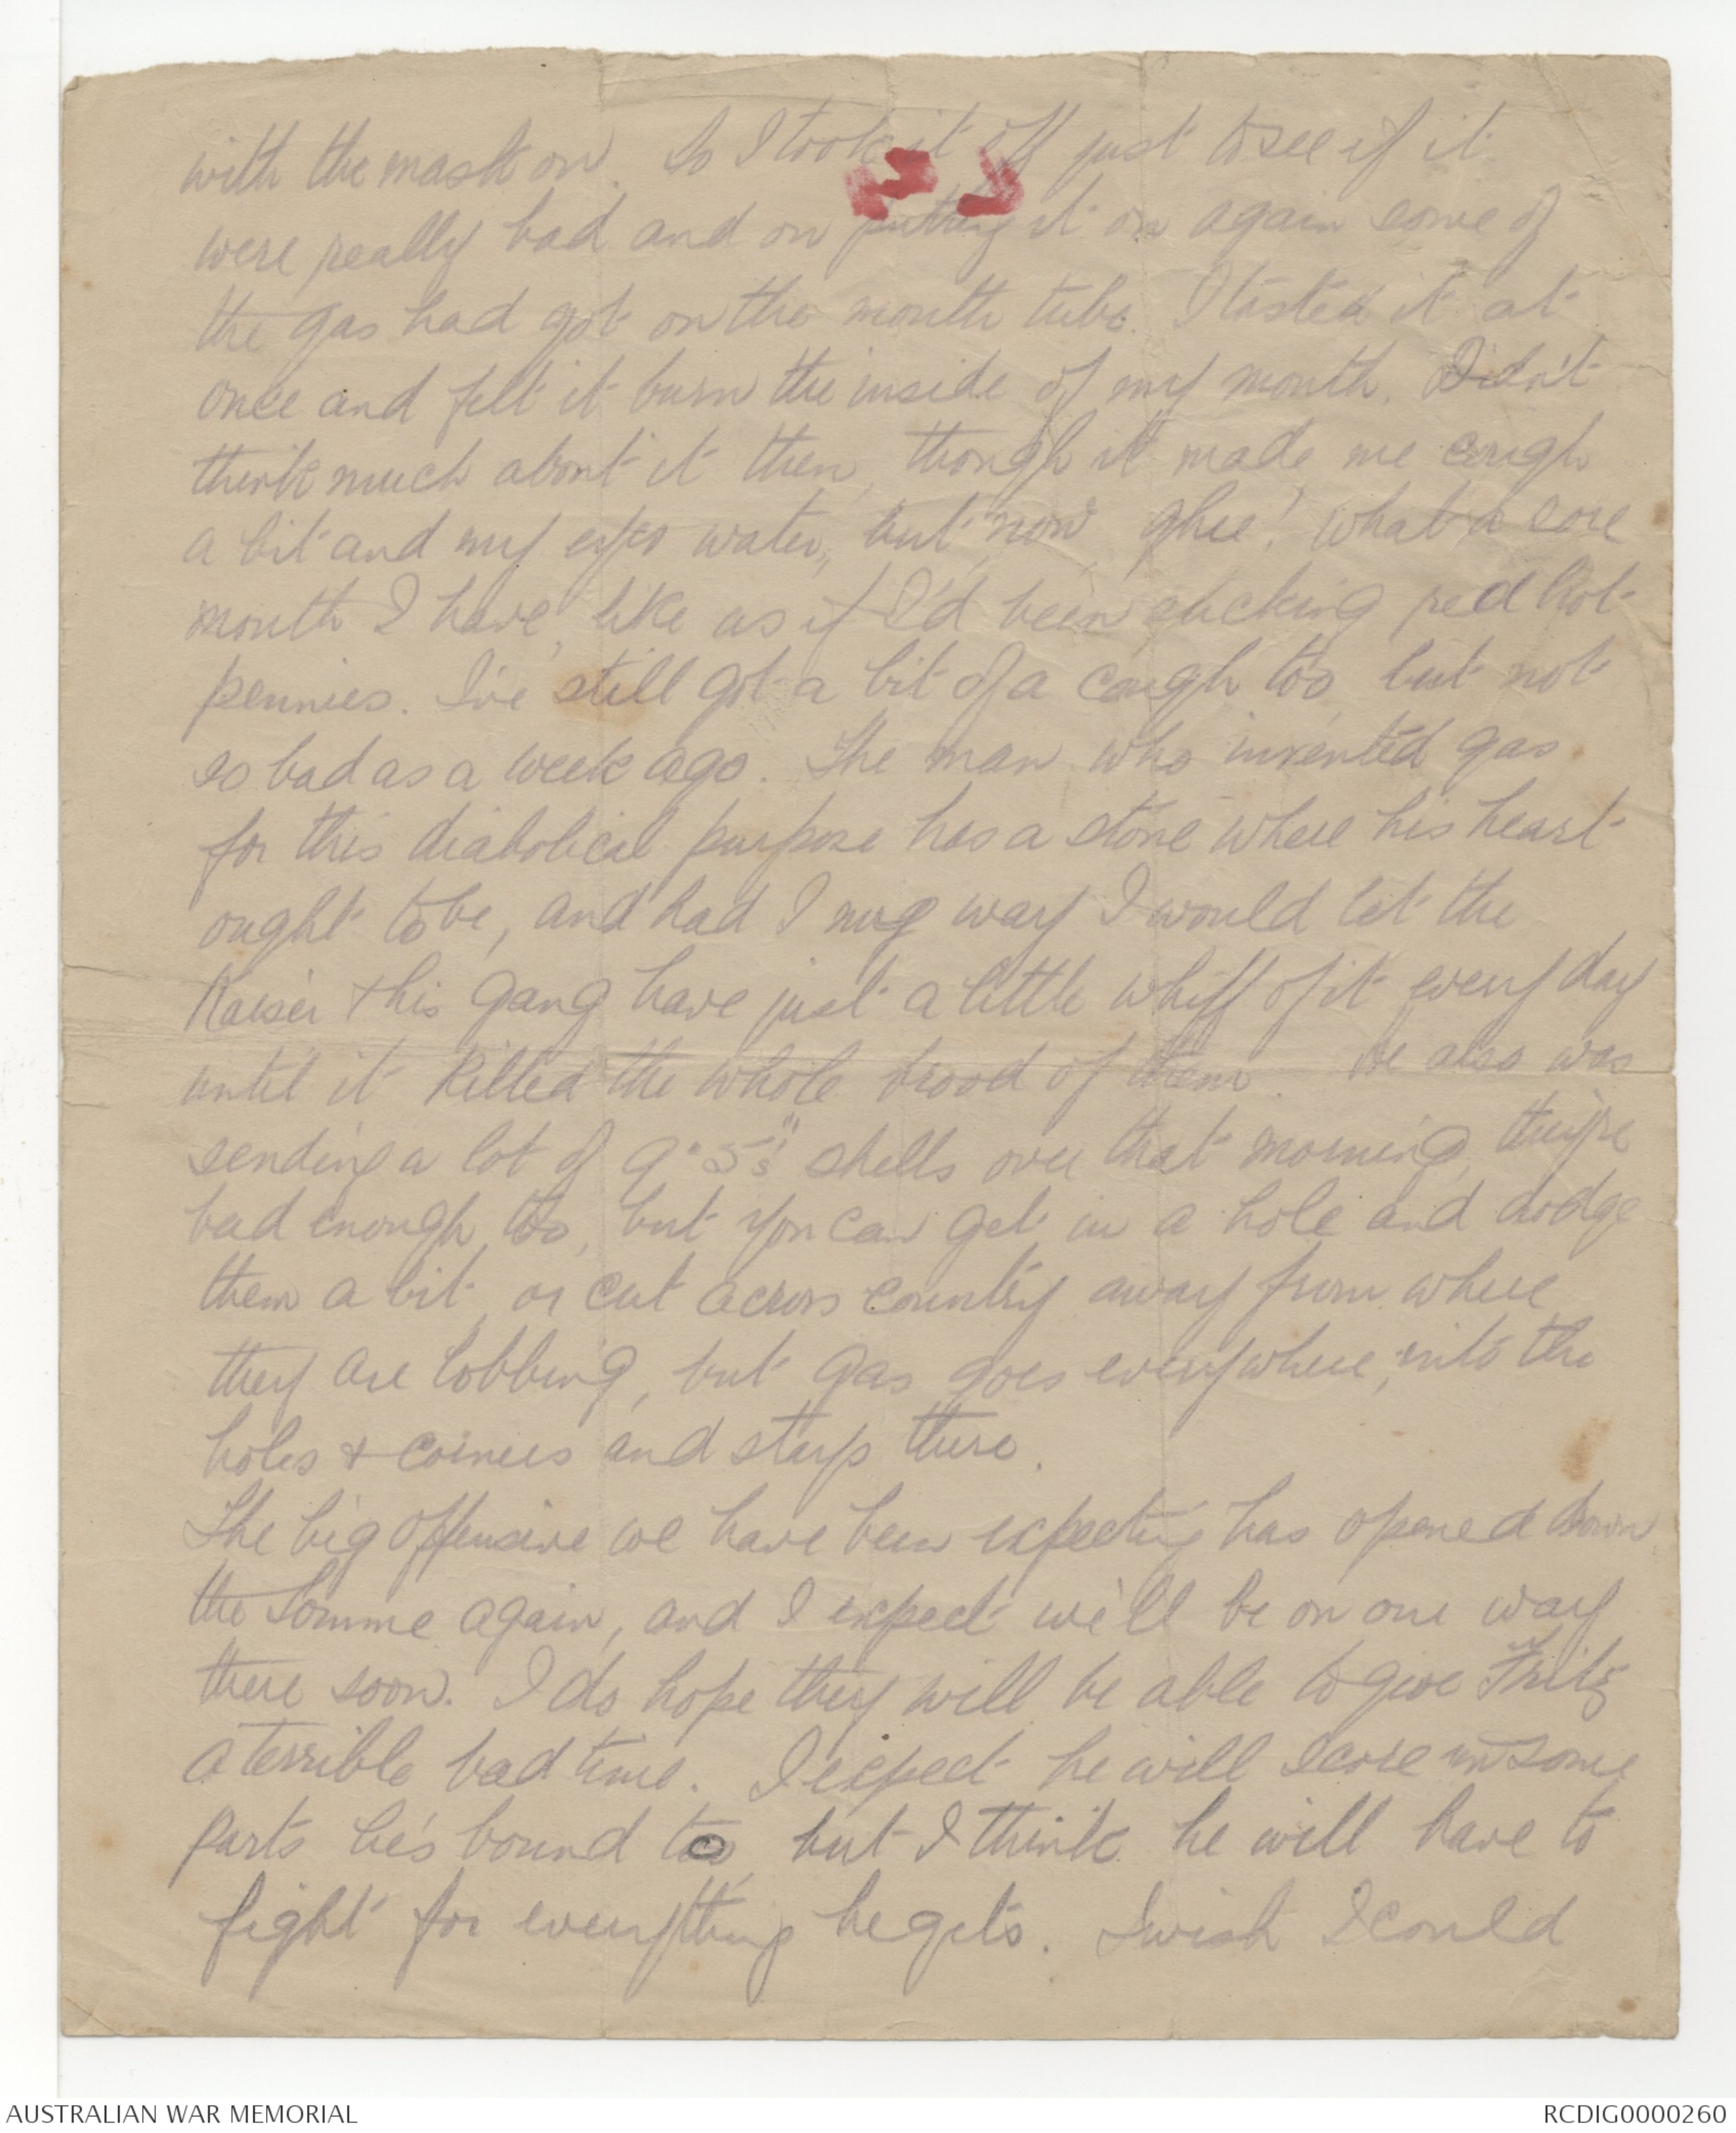 with the mask on. So I took it off just to see if it
were really bad and on putting it on again some of
the gas had got on the mouth tube. I tasted it at
once and felt it burn the inside of my mouth. Didn't
think much about it then, though it made me cough
a bit and my eyes water, but now ghee! what a sore
mouth I have, like as if I'd been sucking red hot
pennies. I've still got a bit of a cough too, but not
so bad as a week ago. The man who invented gas
for this diabolical purpose has a stone where his heart
ought to be, and had I my way I would let the
Kaiser & his gang have just a little whiff of it every day
until it killed the whole brood of them. He also was
sending a lot of 9.5"s shells over that morning, they're
bad enough too, but you can get in a hole and dodge
them a bit, or cut across country away from where
they are lobbing, but gas goes everywhere, into the
holes & corners and stays there.
The big offensive we have been expecting has opened down
the Somme again, and I expect we'll be on our way
there soon. I do hope they will be able to give Fritz
a terrible bad time. I expect he will score in some
parts he's bound to, but I think he will have to
fight for everything he gets. I wish I could
AUSTRALIAN WAR MEMORIAL
RCDIG0000260